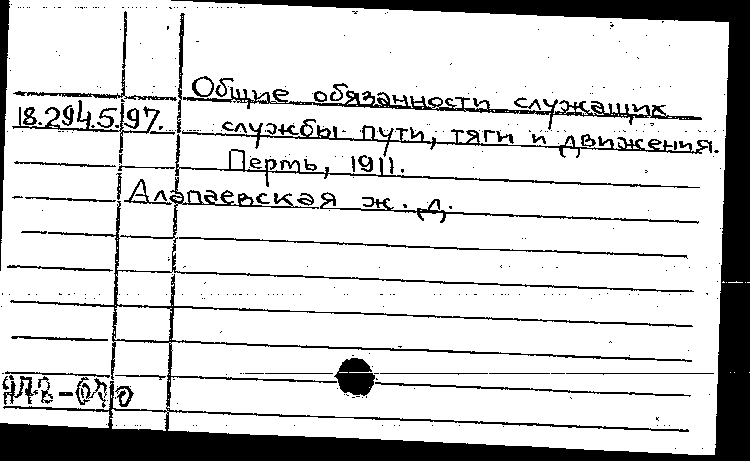 Общие обязанности служащих
18.294.5.97. службы пути, тяги и движения.
Пермь, 1911.
Алапаевская ж. д.